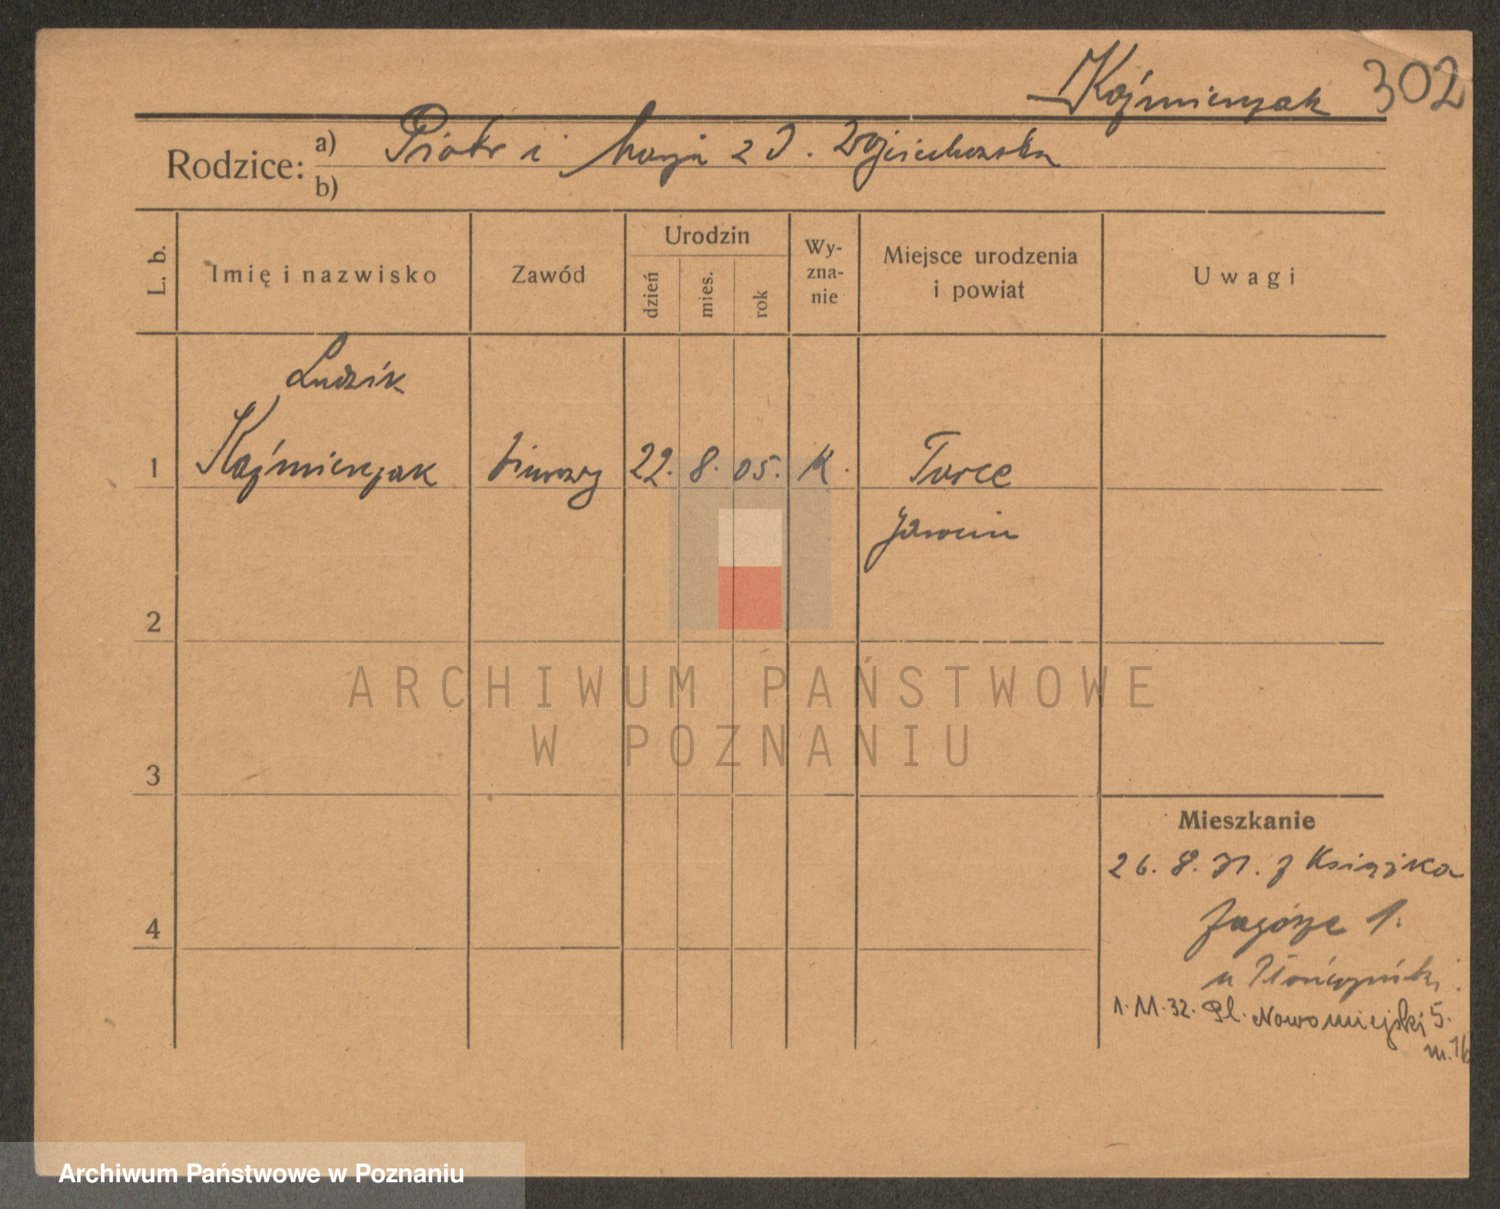 Kaźmierczak 302
Rodzice: a) Piotr i Marja z d. Wojciechowska
b)
L. b.
Imię i nazwisko
Zawód
Urodzin
dzień
mies.
rok
Wy-
zna-
nie
Miejsce urodzenia
i powiat
Uwagi
Ludwik
1 Kaźmierczak biurowy 22. 8. 05. K. Turce
Jarocin
2
3
4
ARCHIWUM PAŃSTWOWE
W POZNANIU
Mieszkanie
26. 8. 31. z Książka
Zagórze 1.
u
1. 11. 32. Pl. Nowomiejski 5.
m. 16
Archiwum Państwowe w Poznaniu